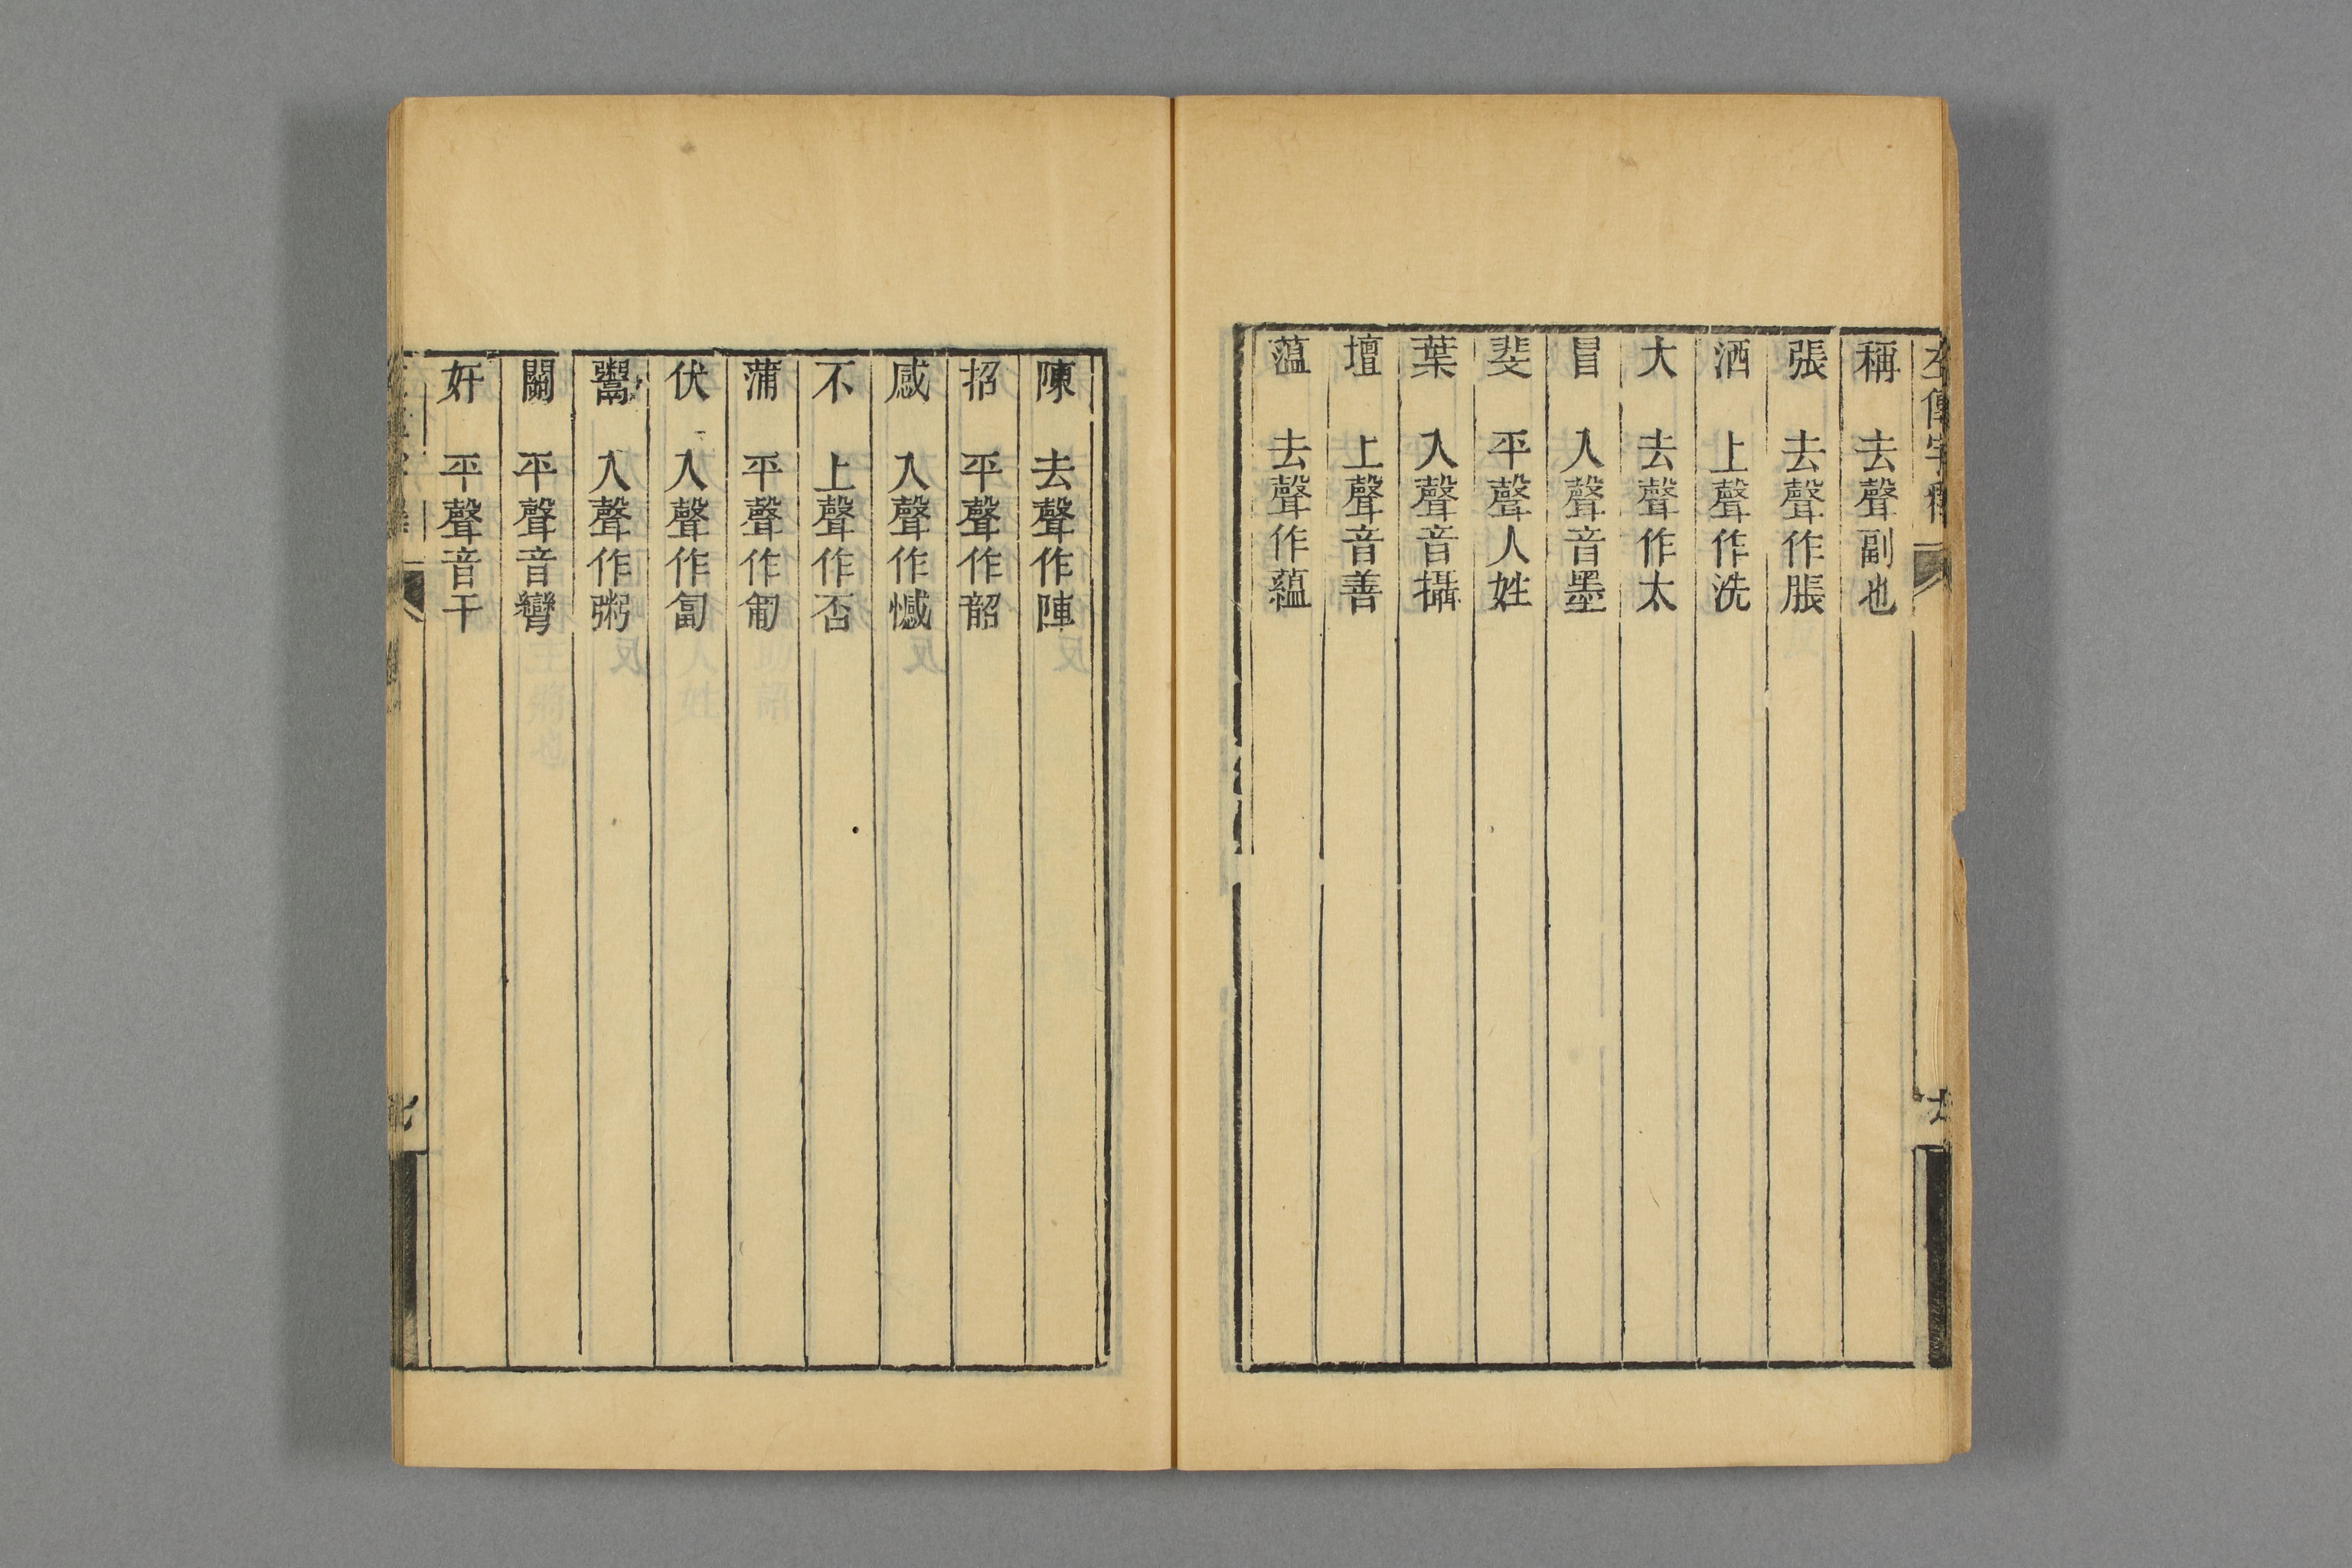 左傳字釋
稱　去聲副也
張　去聲作脹
洒　上聲作洗
大　去聲作太
冒　入聲音墨
斐　平聲人姓
葉　入聲音攝
壇　上聲音善
薀　去聲作蘊
陳　去聲作陣
招　平聲作韶
感　入聲作憾
不　上聲作否
蒲　平聲作匍
伏　入聲作匐
鬻　入聲作粥
關　平聲音彎
奸　平聲音干